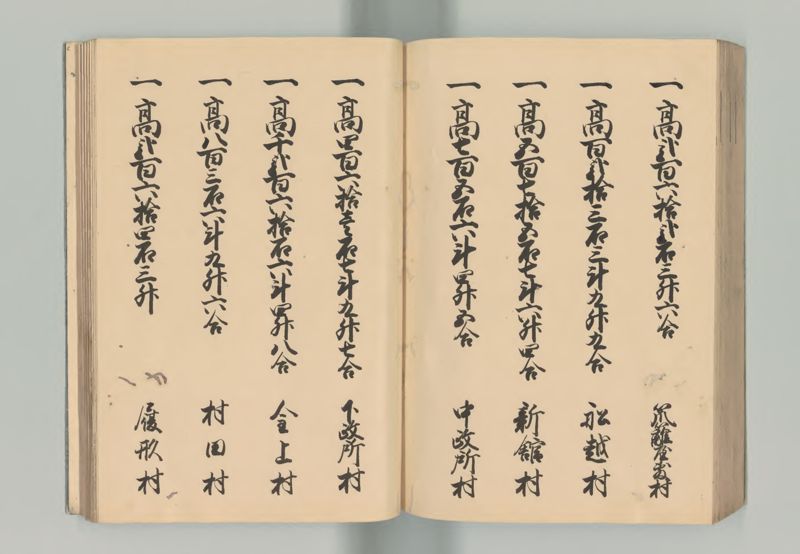 一高弐百六拾弐石三升六合
一高百弐拾三石三斗九升九合 船越村
一高五百七拾五石七斗六升四合 新舘村
一高七百五石六斗四升五合 中政所村
一高四百六拾壱石七斗九升七合 下政所村
一高千弐百六拾石六斗四升八合 仝上村
一高八百三石六斗九升六合 村田村
一高弐百六拾四石三升 村